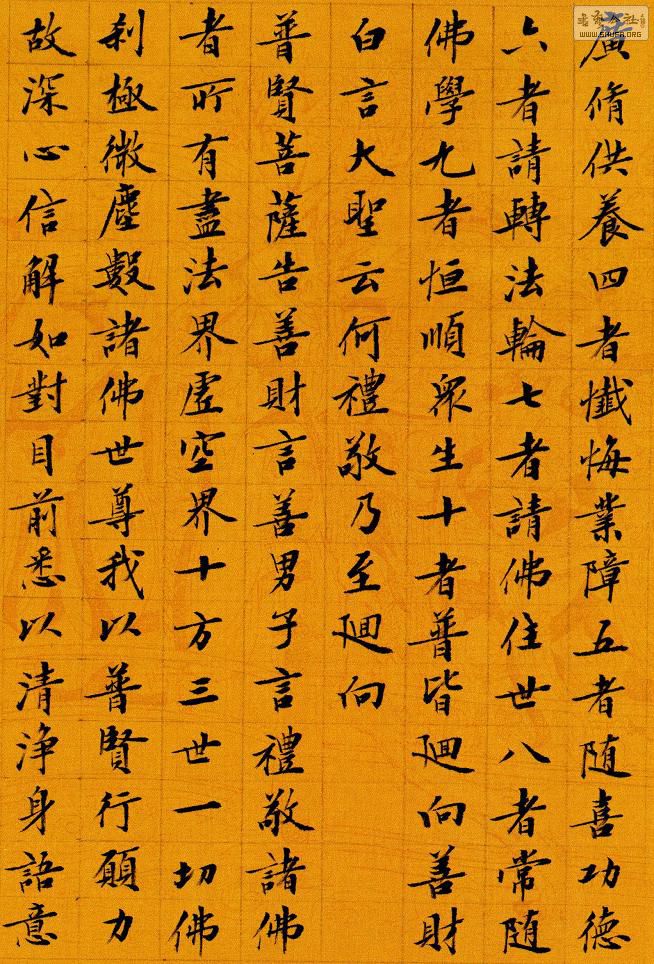 廣脩供養四者懺悔業障五者随喜功德
六者請轉法輪七者請佛住世八者常随
佛學九者恒順眾生十者普皆廻向善財
白言大聖云何禮敬乃至廻向
普賢菩薩告善財言善男子言禮敬諸佛
者所有盡法界虛空界十方三世一切佛
刹極微塵數諸佛世尊我以普賢行願力
故深心信解如對目前悉以清淨身語意
WWW.SHUFA.ORG